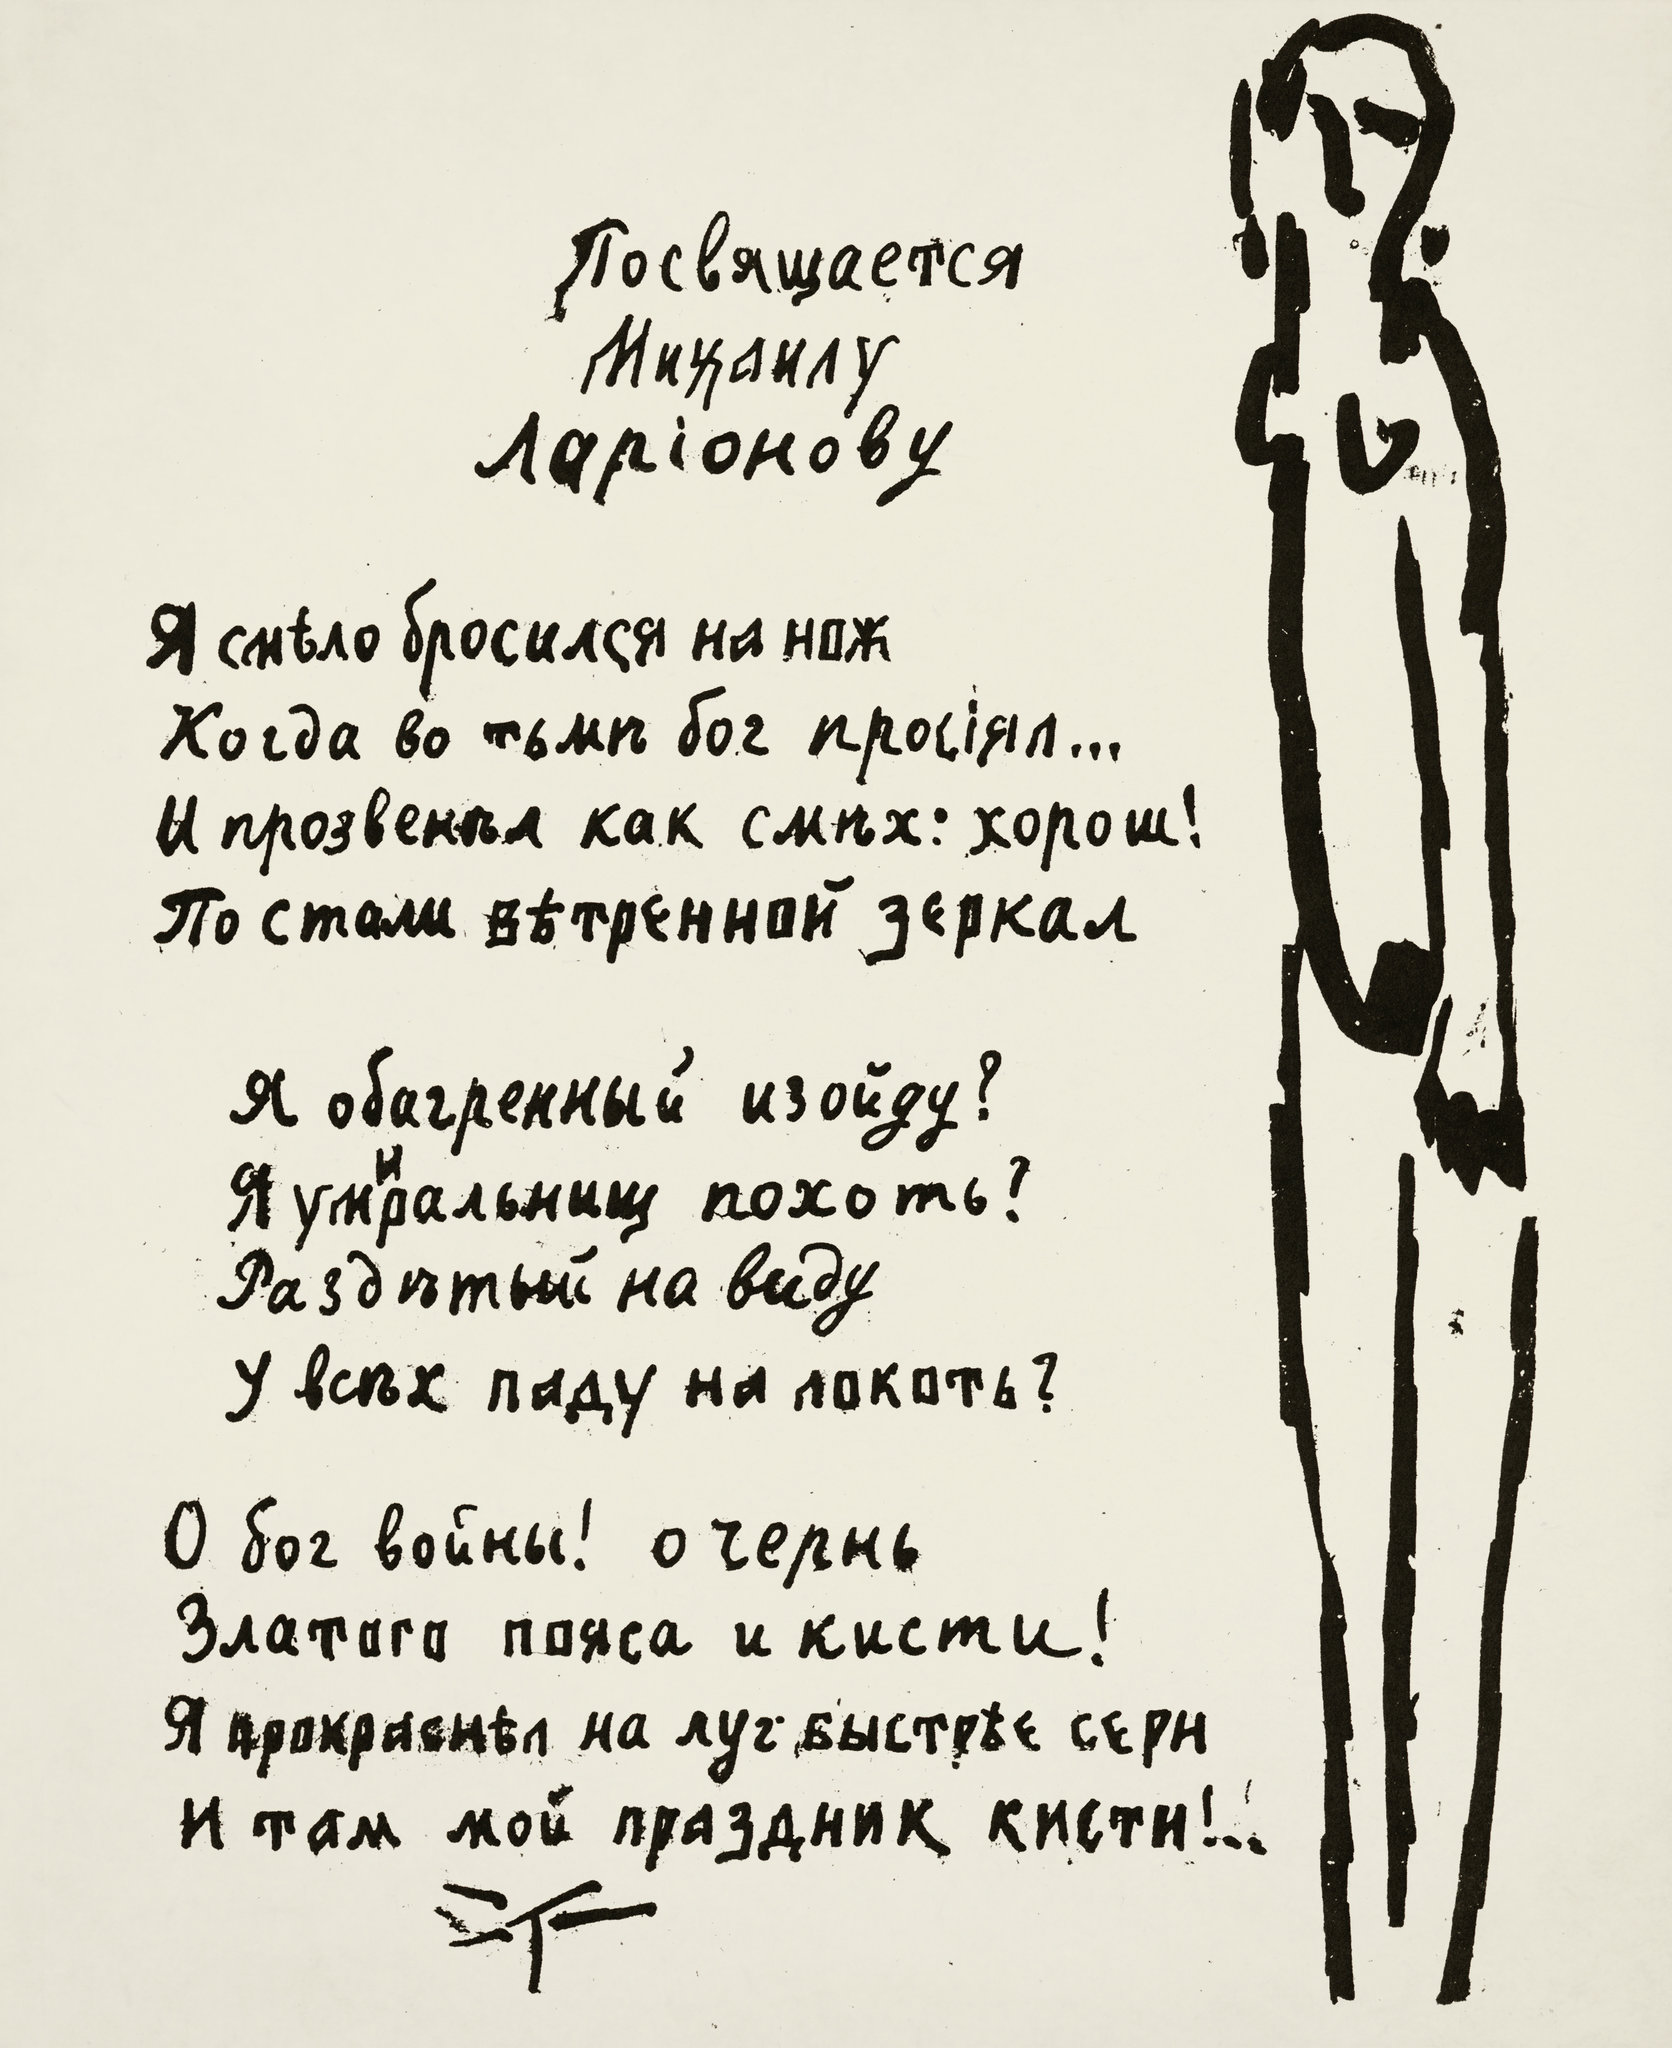 Посвящается
Михаилу
Ларіонову
Я смѣло бросился на нож
Когда во тьмѣ бог просіял...
И прозвенѣл как смѣх: хорош!
По стали вѣтренной зеркал
Я обагренный изойду?
Я умиральнищ похоть?
Раздѣтый на виду
У всѣх паду на локоть?
О бог войны! о чернь
Златого пояса и кисти!
Я прокраснѣл на луг быстрѣе серн
И там мой праздник кисти!...